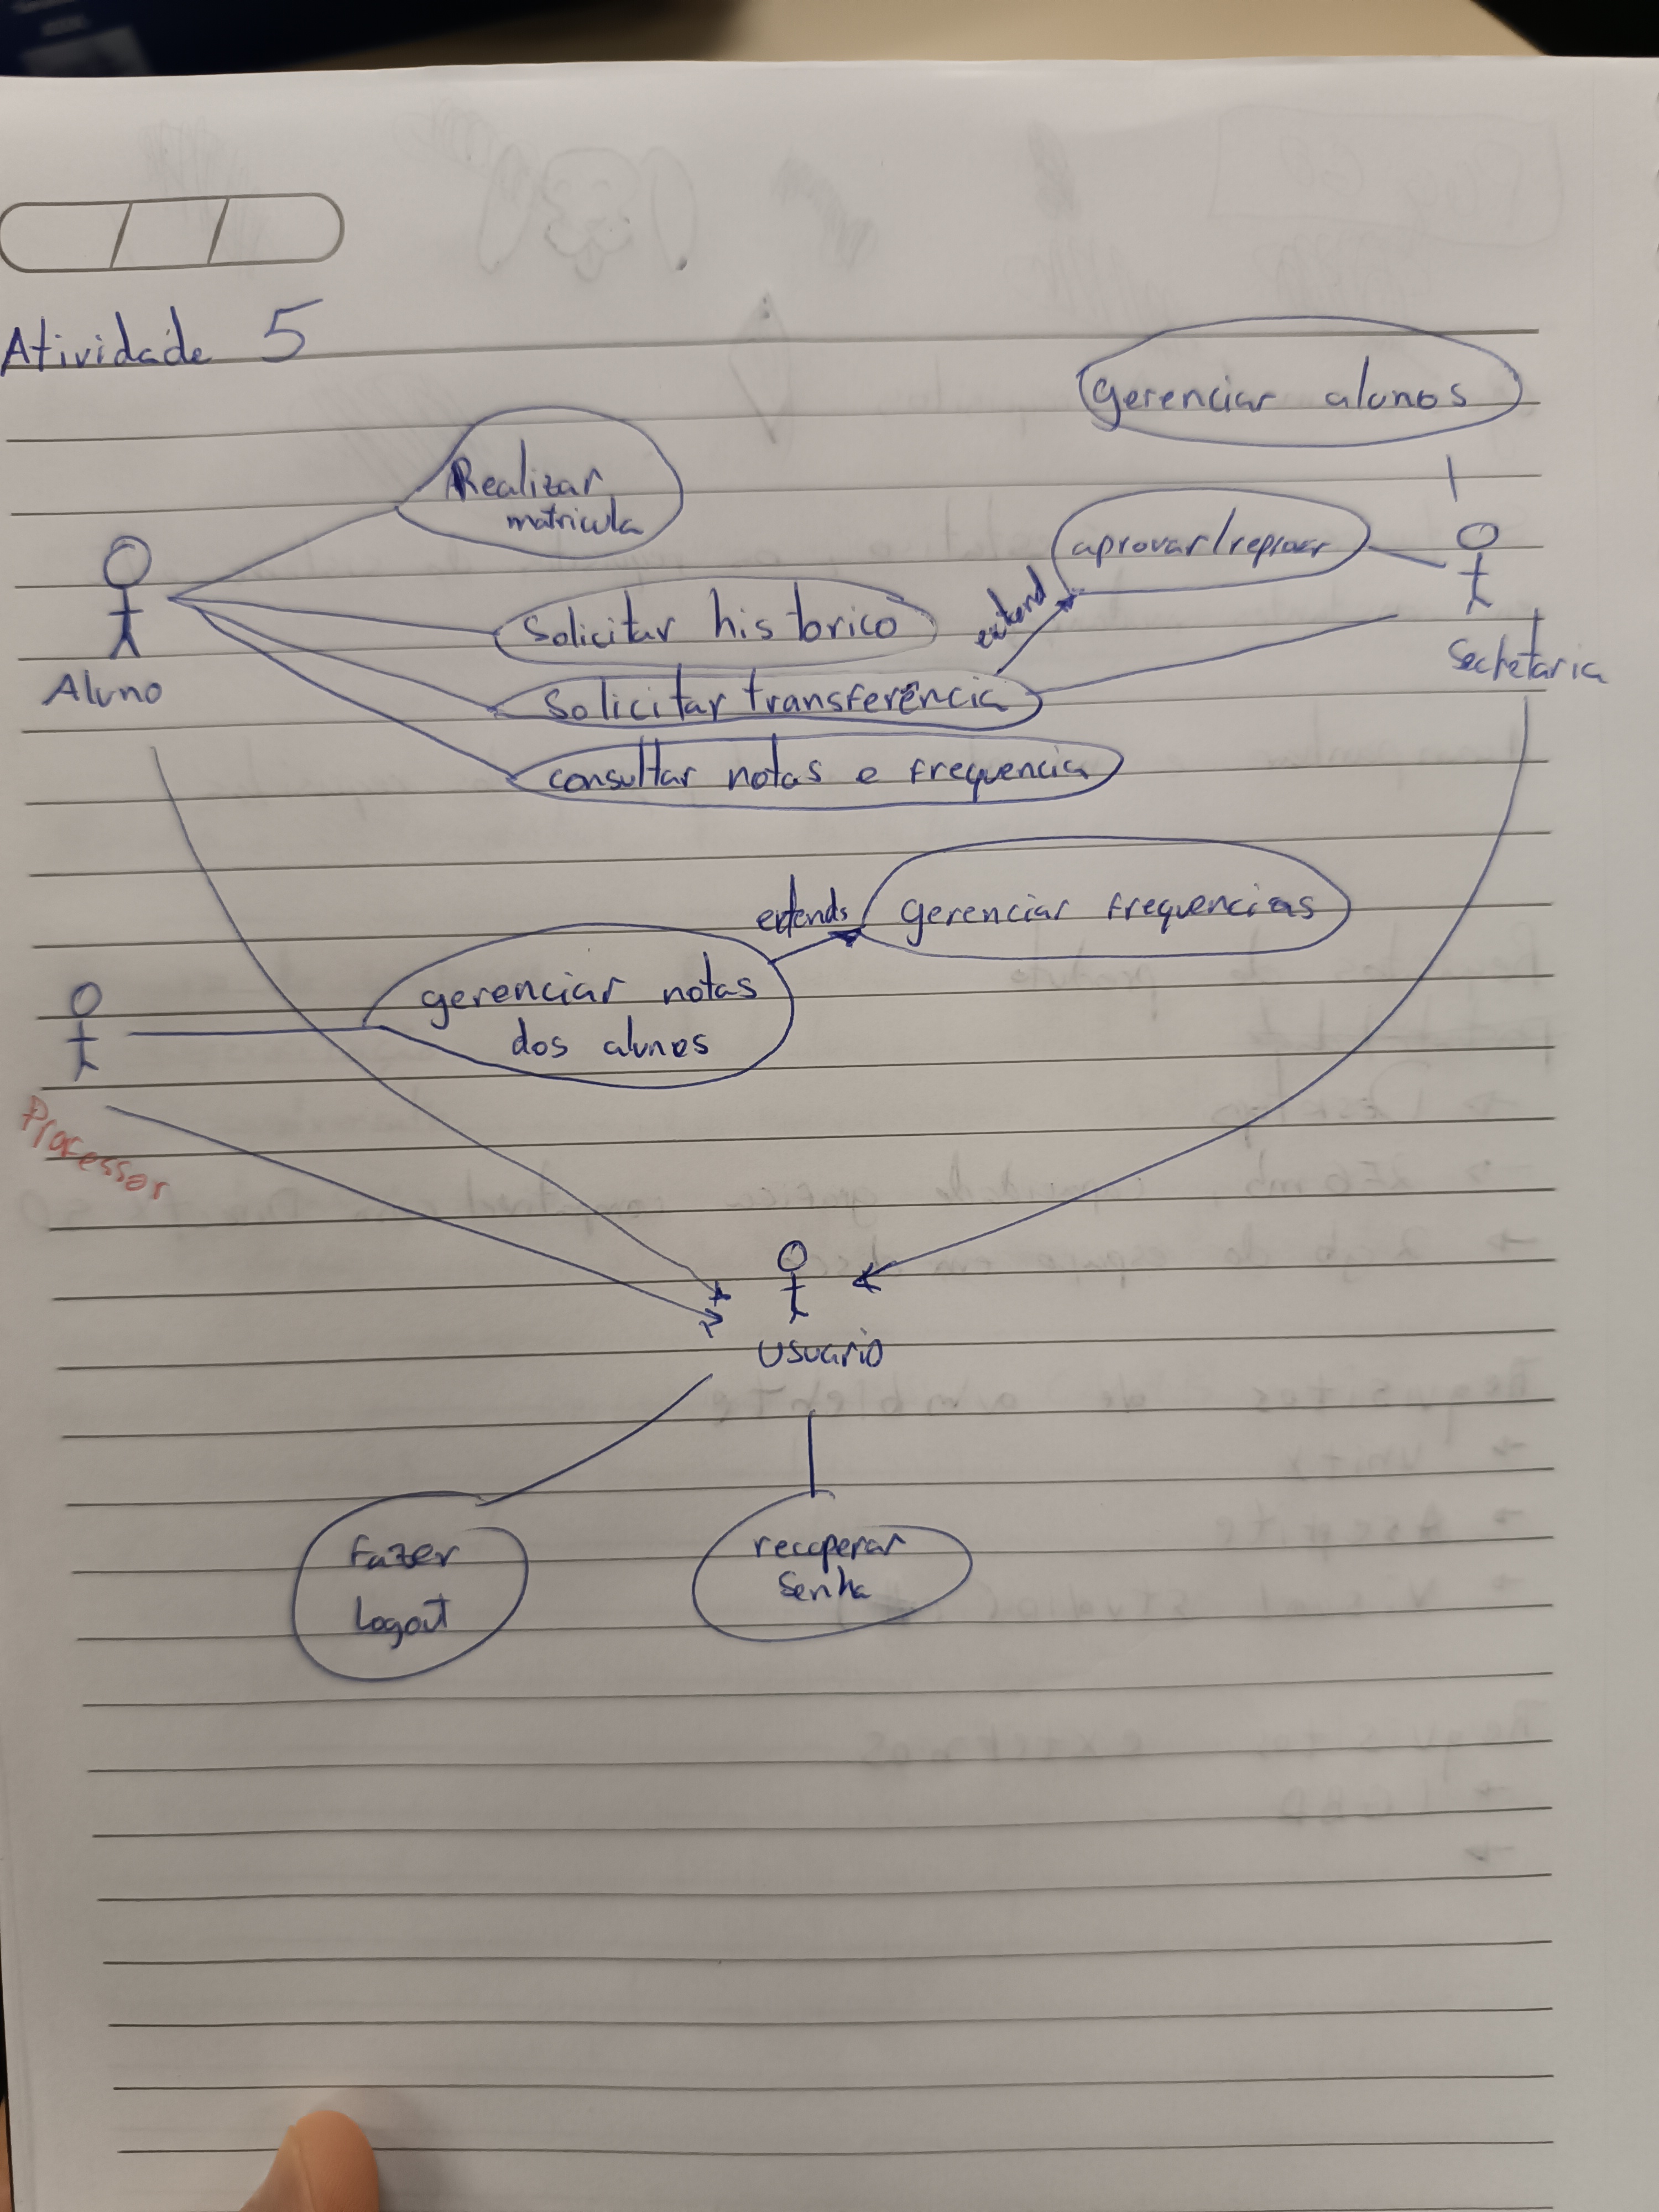 Atividade 5
gerenciar alunos
Realizar
matricula
aprovar/reprovar
extend
Solicitar historico
Secretaria
Aluno
Solicitar transferência
consultar notas e frequencia
extends
gerenciar frequencias
gerenciar notas
dos alunos
Processor
usuario
Fazer
Logout
recuperar
Senha